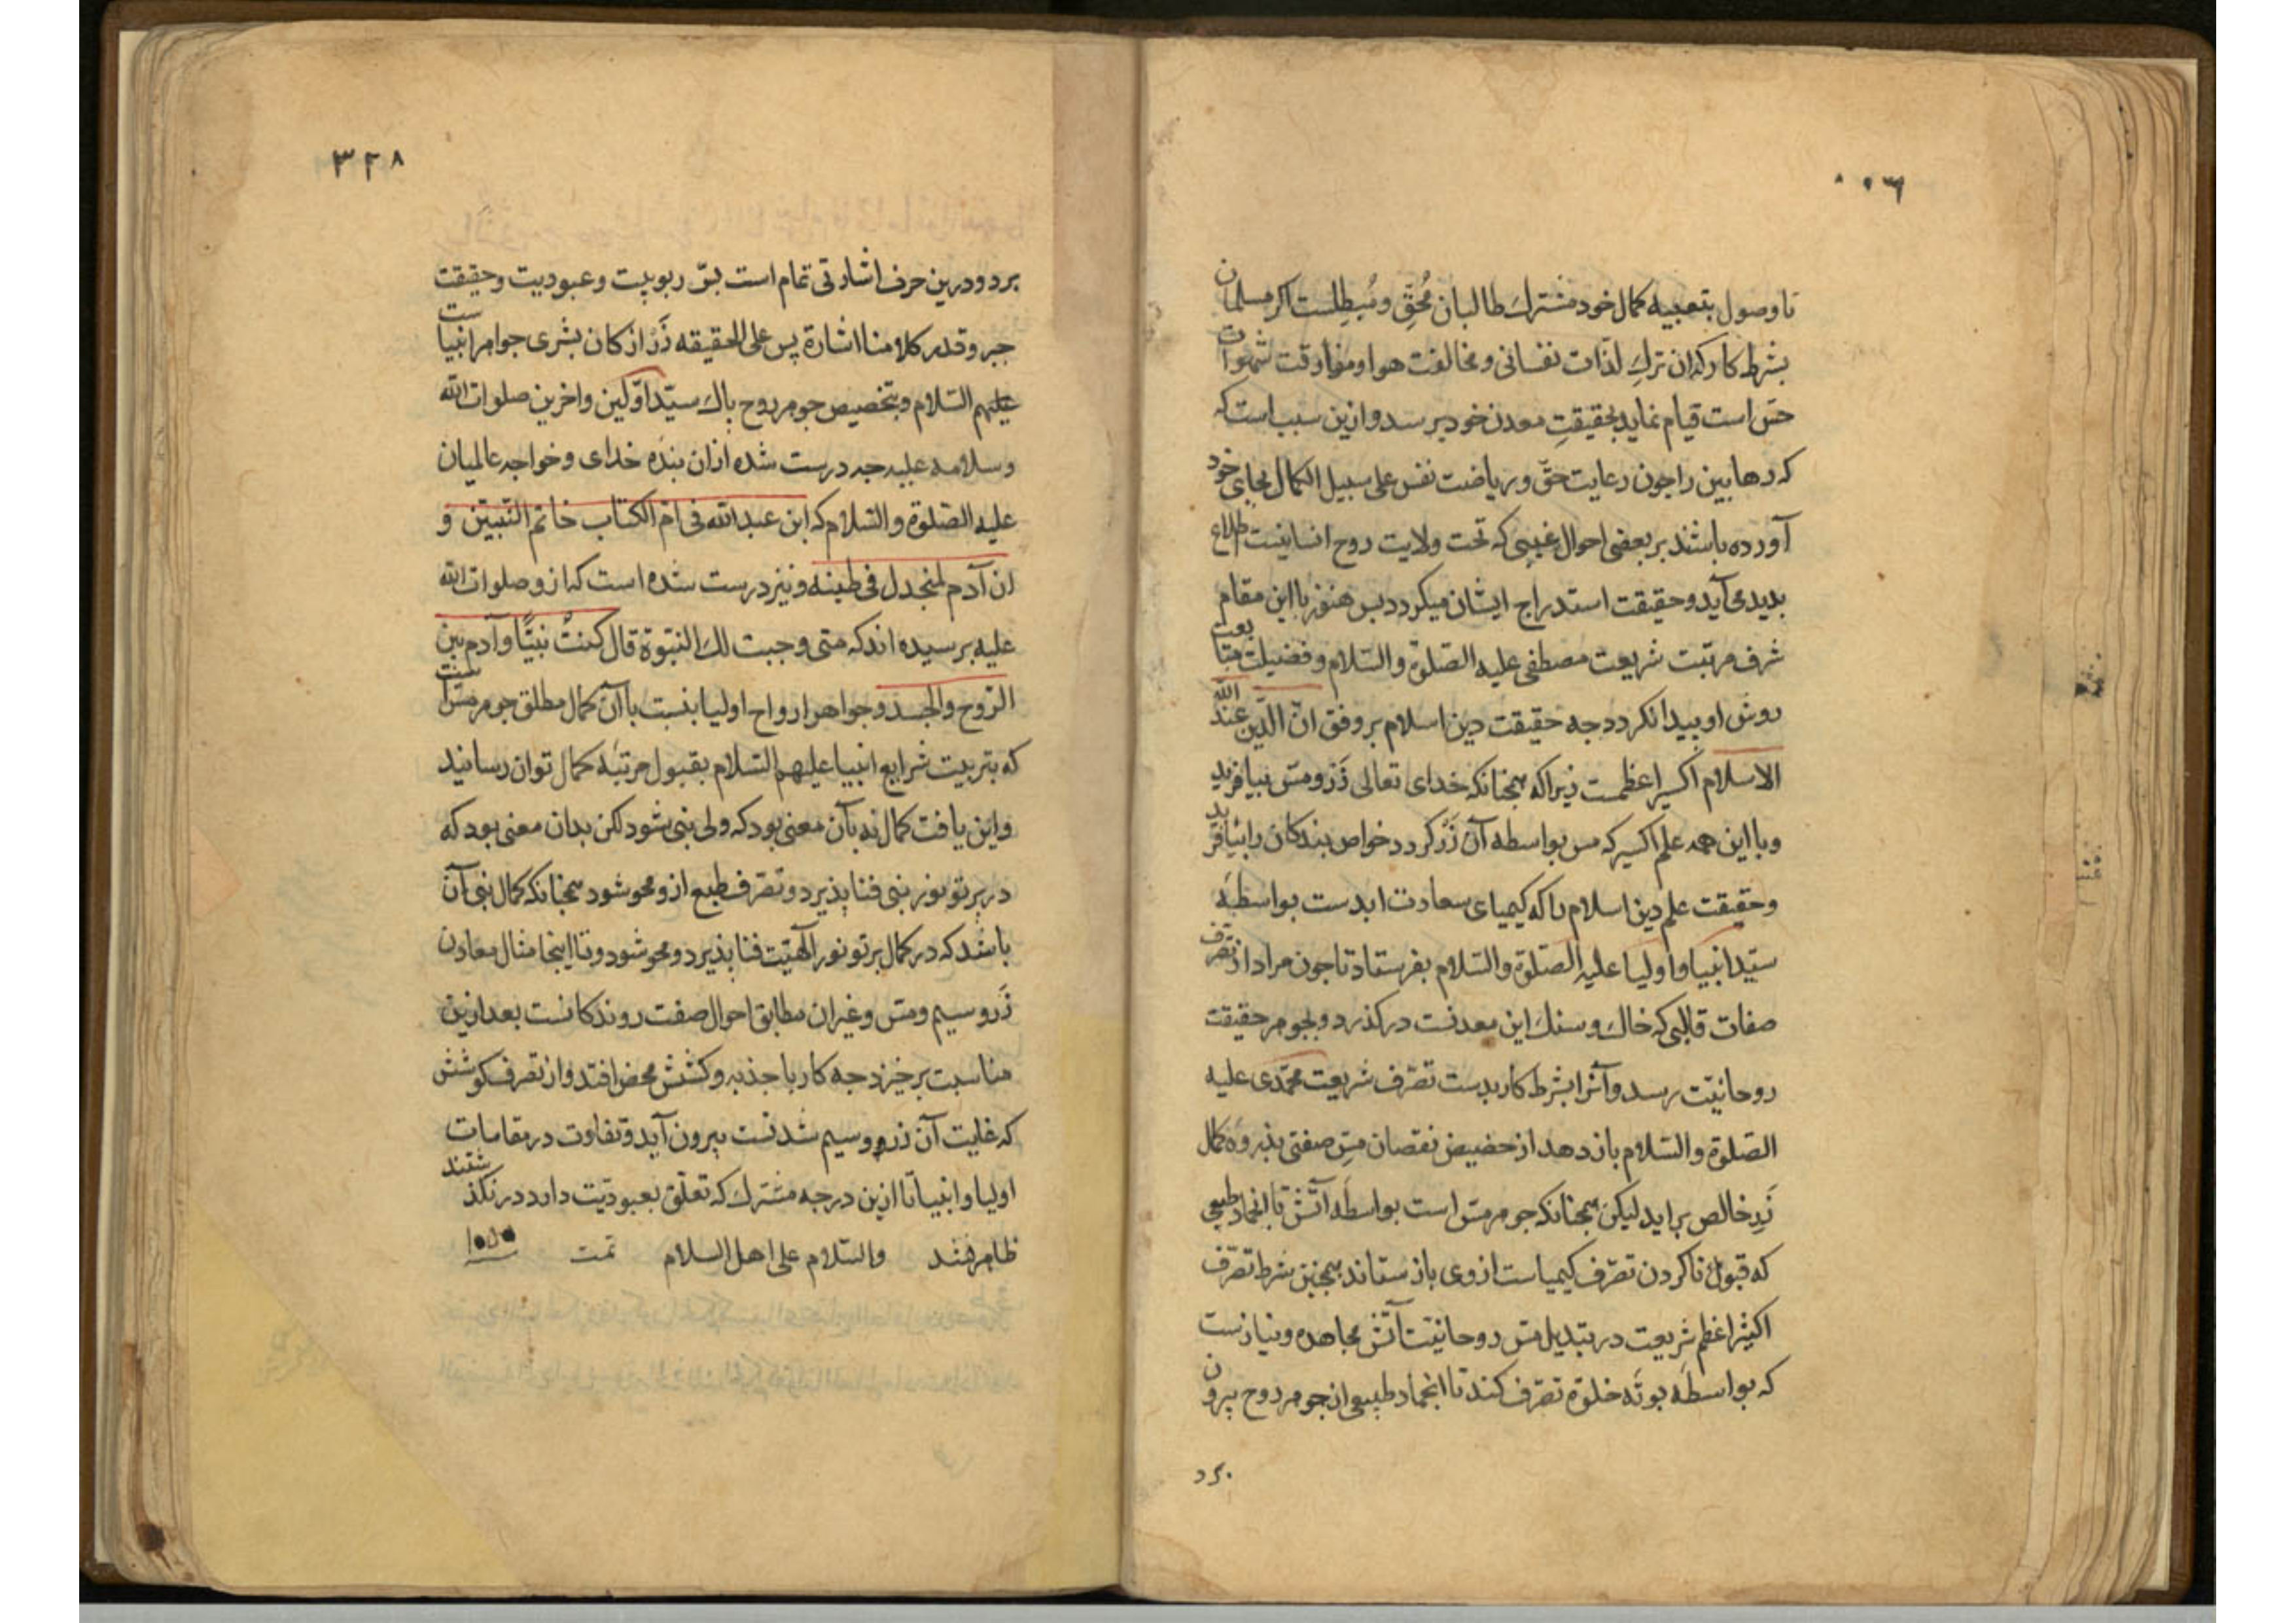 تا وصول بتعبیه کمال خود مشترک طالبان مُحِقّ و مُبطِلست اکر مسلمان
بشرط کار کذان ترکِ لذّات نفسانی و مخالفت هوا و مفارقت شهوات
حسّ است قیام نماید بحقیقتِ معدن خود برسد و ازین سبب است که
که رهابین را جون رعایت حقّ و ریاضت نفس علی سبیل الکمال بجای خود
آورده باشند بر بعضی احوال غیبی که تحت ولایت روح انسانیست اطلاع
بدید می‌آید و حقیقت استدراج ایشان میکردد بس هنوز با این مقام
شرف مرتبت شریعت مصطفی علیه الصّلوة والسّلام و فضیلت متابعت
روش او بیدا نکردد جه حقیقت دین اسلام بر وفق انّ الدّین عند الله
الاسلام اکسیر اعظمست زیرا که همجنانکه خدای تعالی زَر و مس بیافرید
و با این همه علم اکسیر که مس بواسطه آن زَر کردد خواص بندکان را بیافرید
وحقیقت علم دین اسلام را که کیمیای سعادت ابدست بواسطهٔ
سیّد انبیا و اولیا علیه الصّلوة والسّلام بفرستاد تا جون مراد از تصّرف
صفات قالبی که خاک و سنک این معدنست درکذرد و بجوهر حقیقت
روحانیّت رسد و آنرا بشرط کار بدست تصّرف شریعت محمّدی علیه
الصّلوة والسّلام باز دهد از حضیض نقصان مسِ صفتی بذروهٔ کمال
زَرِ خالص براید لیکن همجنانکه جوهر مسّ است بواسطه آتش تا انجماد طبیعی
که قبول ناکردن تصّرف کیمیاست از وی باز ستاند همجنین شرط تصّرف
اکسیر اعظم شریعت در تبدیل مسّ روحانیّت آتش مجاهده و نیازست
که بواسطه بوتَه خلوة تصّرف کند تا انجماد طبیعی از جوهر روح بیرون
برد
٣٢٨
برد و درین حرف اشارتی تمام است بسّر ربوبیت و عبودیت و حقیقت
جبر و قدر کلامنا اشارة پس علی الحقیقه زَر از کان بشری جواهر انبیاست
علیهم السّلام و بتخصیص جوهر روح پاک سیّد اوّلین و اخرین صلوات الله
وسلامه علیه جه درست شده از ان بنده خدای و خواجه عالمیان
علیه الصّلوة والسّلام که ابن عبدالله فی امّ الکتاب خاتم النّبیّن و
ان آدم لمنجدل فی طینه و نیز درست شده است که از و صلوات الله
علیه برسیده اند که متی وجبت لک النبّوة قال کنتُ نبیًّا و آدم بین
الرّوح والجسد و جواهر ارواح اولیا بنسبت با آن کمال مطلق جوهر مسّ است
که بتربیت شرایع انبیا علیهم السّلام بقبول مرتبهٔ کمال توان رسانید
و این یافت کمال نه بآن معنی بود که ولی نبی شود لکن بدان معنی بود که
در پرتو نور نبی فنا پذیرد و تصّرف طبع از و محو شود همجنانکه کمال نبی آن
باشد که در کمال پرتو نور الهّیّت فنا پذیرد و محو شود و تا اینجا مثال معادن
زَر و سیم و مسّ و غیر ان مطابق احوال صفت روندکانست بعد ازین
مناسبت برخیزد جه کار با جذبه و کشش محض افتد و از تصّرف کوشش
که غایت آن زر و سیم شدنست بیرون آید و تفاوت در مقامات
اولیا و انبیا تا ازین درجه مشترک که تعلّق بعبودّیت دارد در نکذشتند
ظاهر نشد والسّلام علی اهل السلام تمت